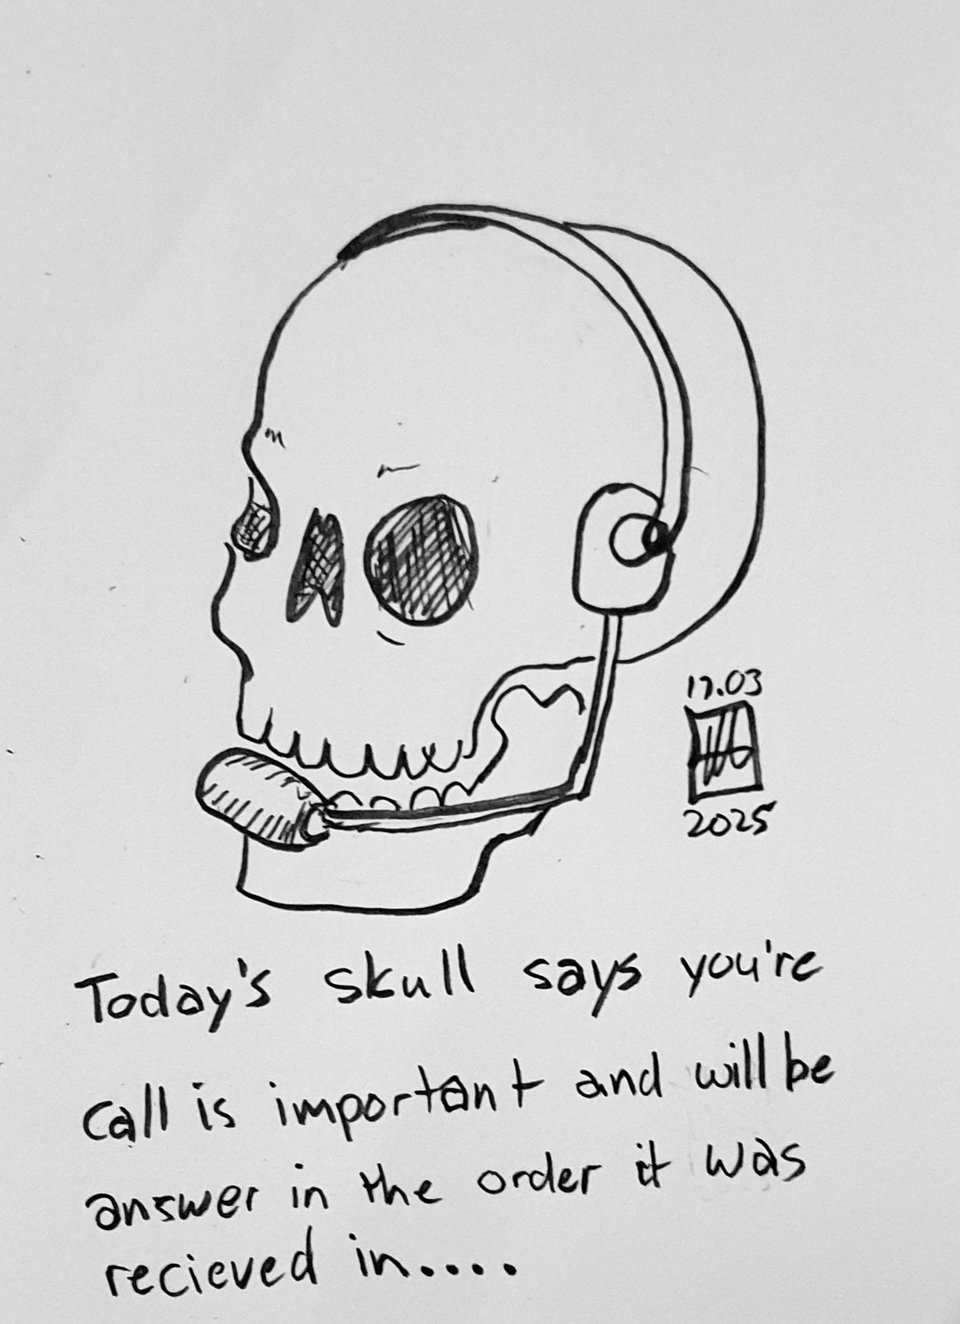 17.03
2025
Today's skull says you're
call is important and will be
answer in the order it was
recieved in....